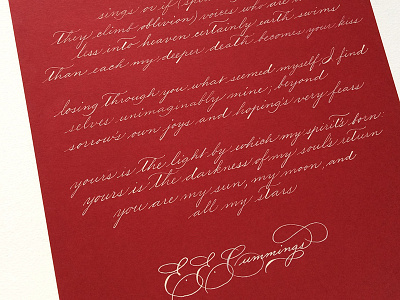 sings or if (spi
they climb oblivion) voices who are
liss into heaven certainly earth swims
than each my deeper death becomes your kiss
losing through you what seemed myself, I find
selves unimaginably mine; beyond
sorrow's own joys and hoping's very fears
yours is the light by which my spirit's born:
yours is the darkness of my soul's return
you are my sun, my moon, and
all my stars
E E Cummings